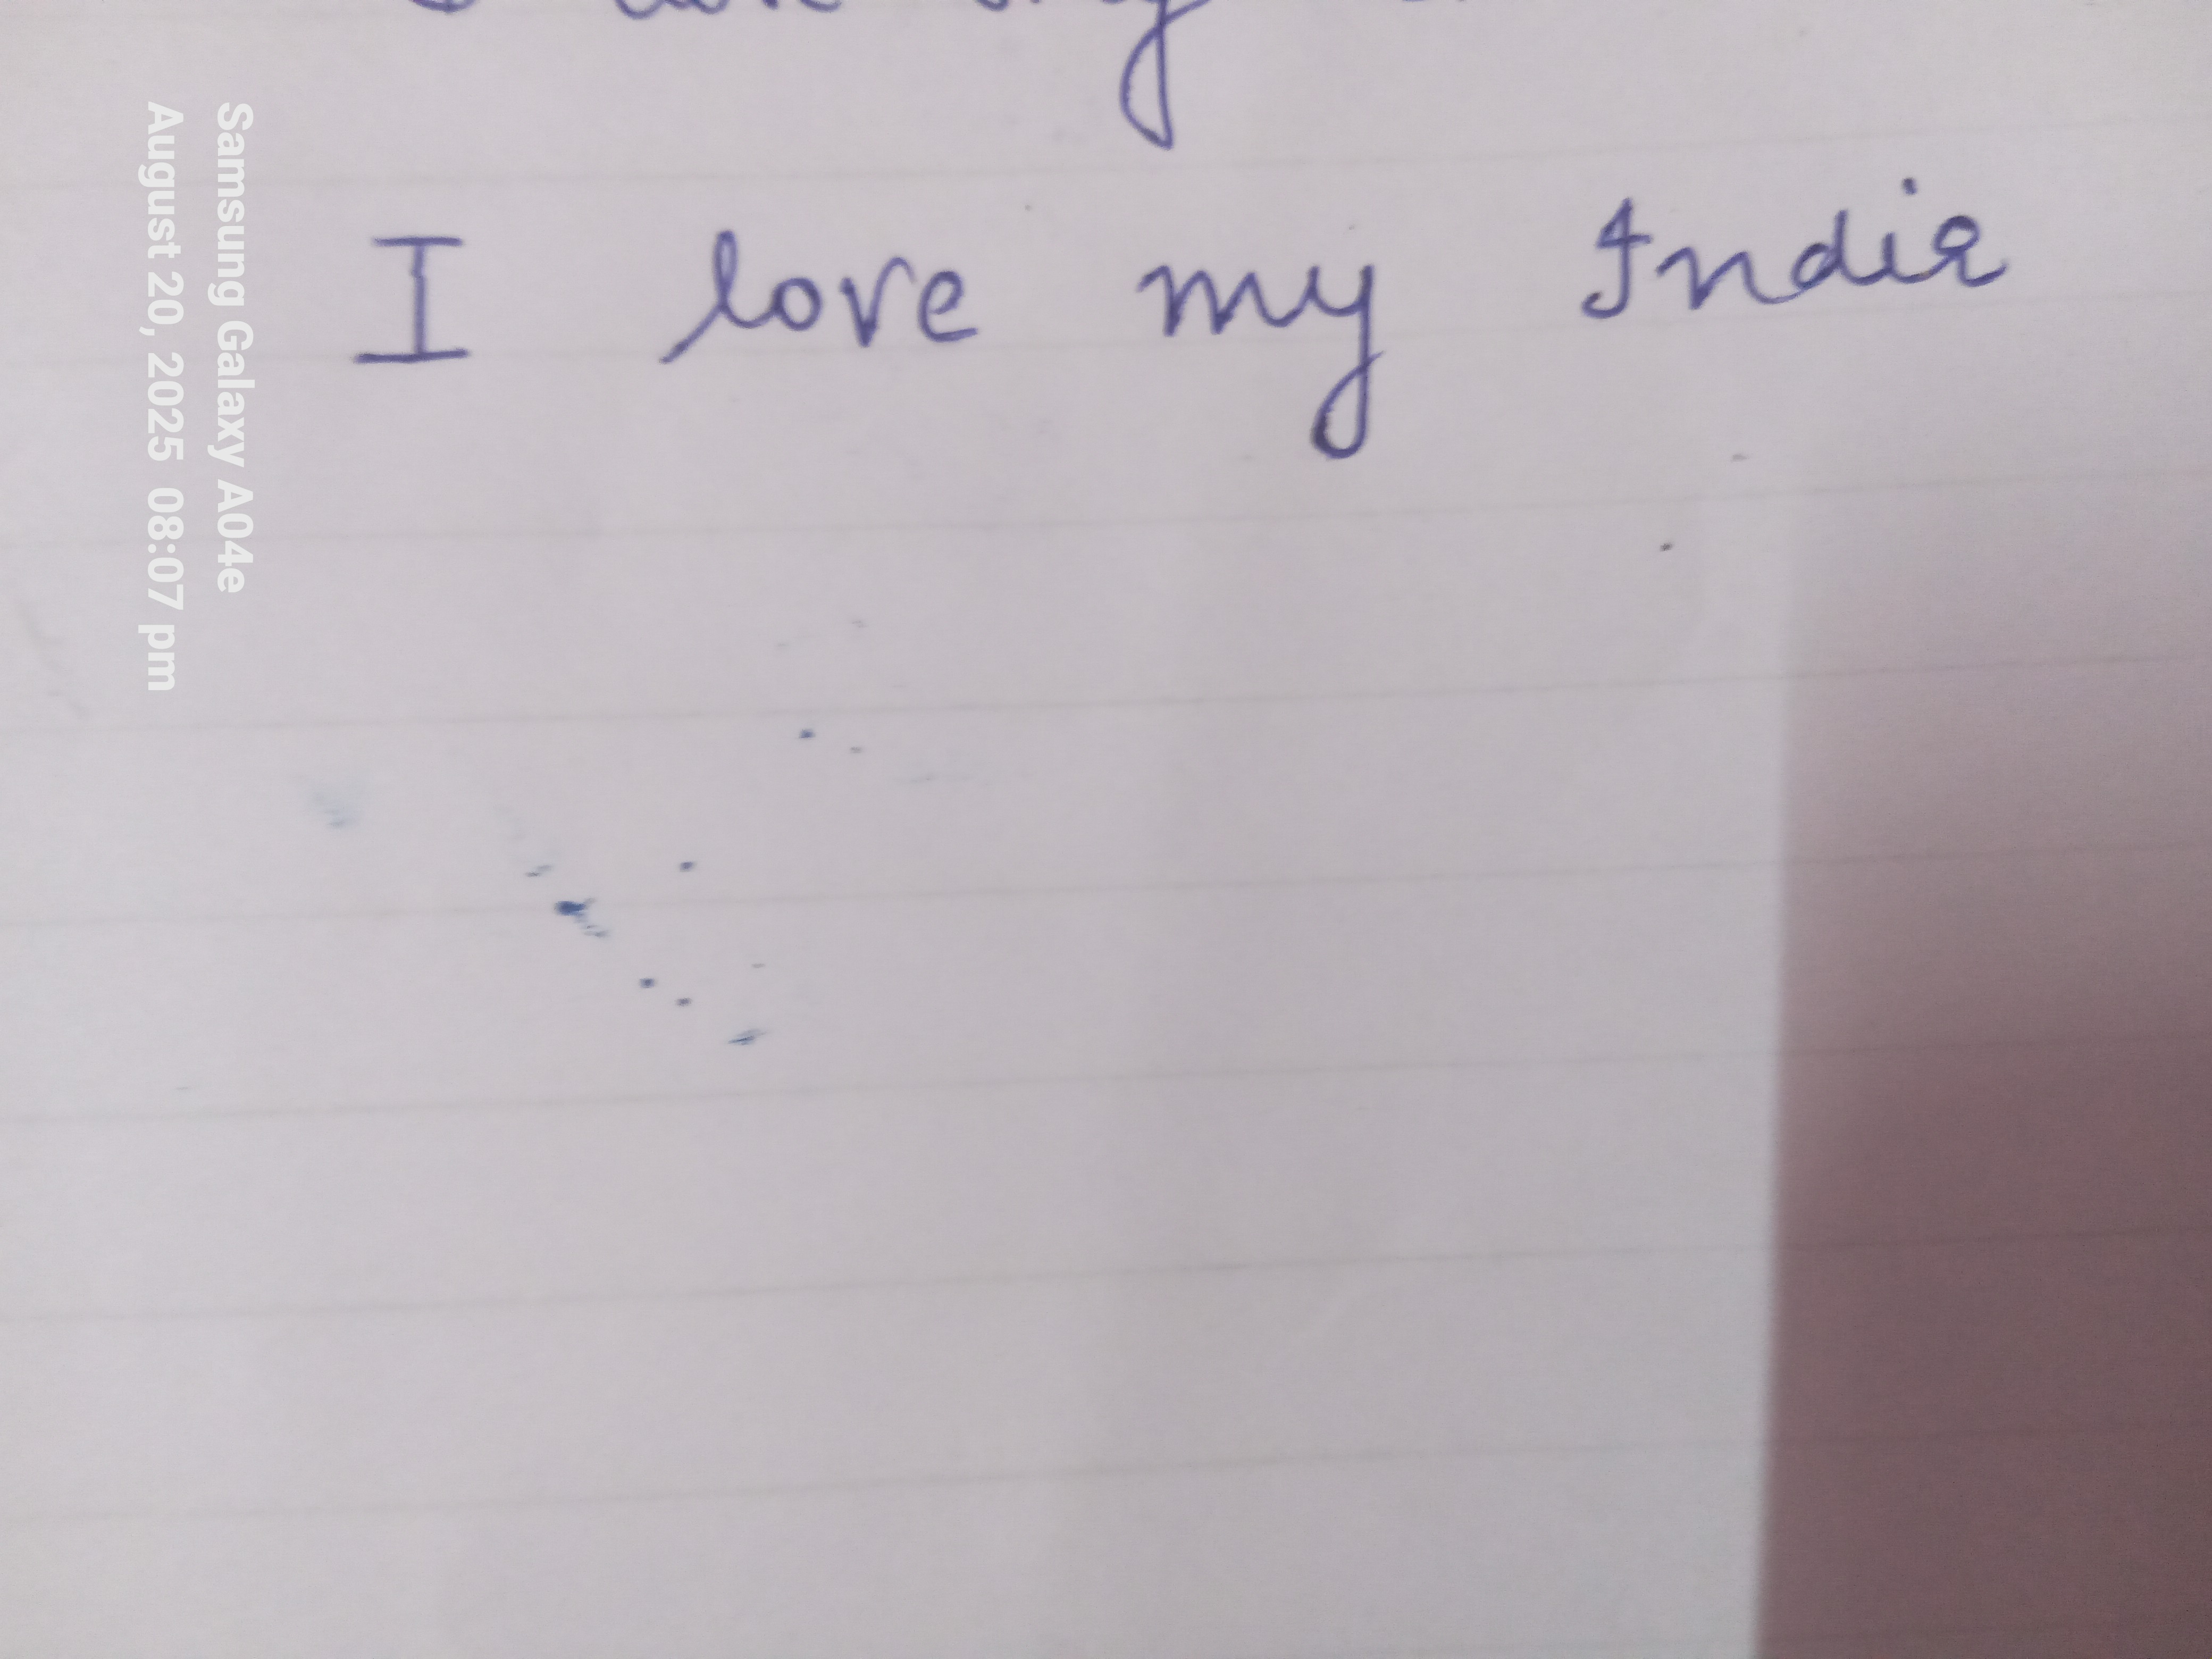 I love my
I love my India
Samsung Galaxy A04e
August 20, 2025 08:07 pm